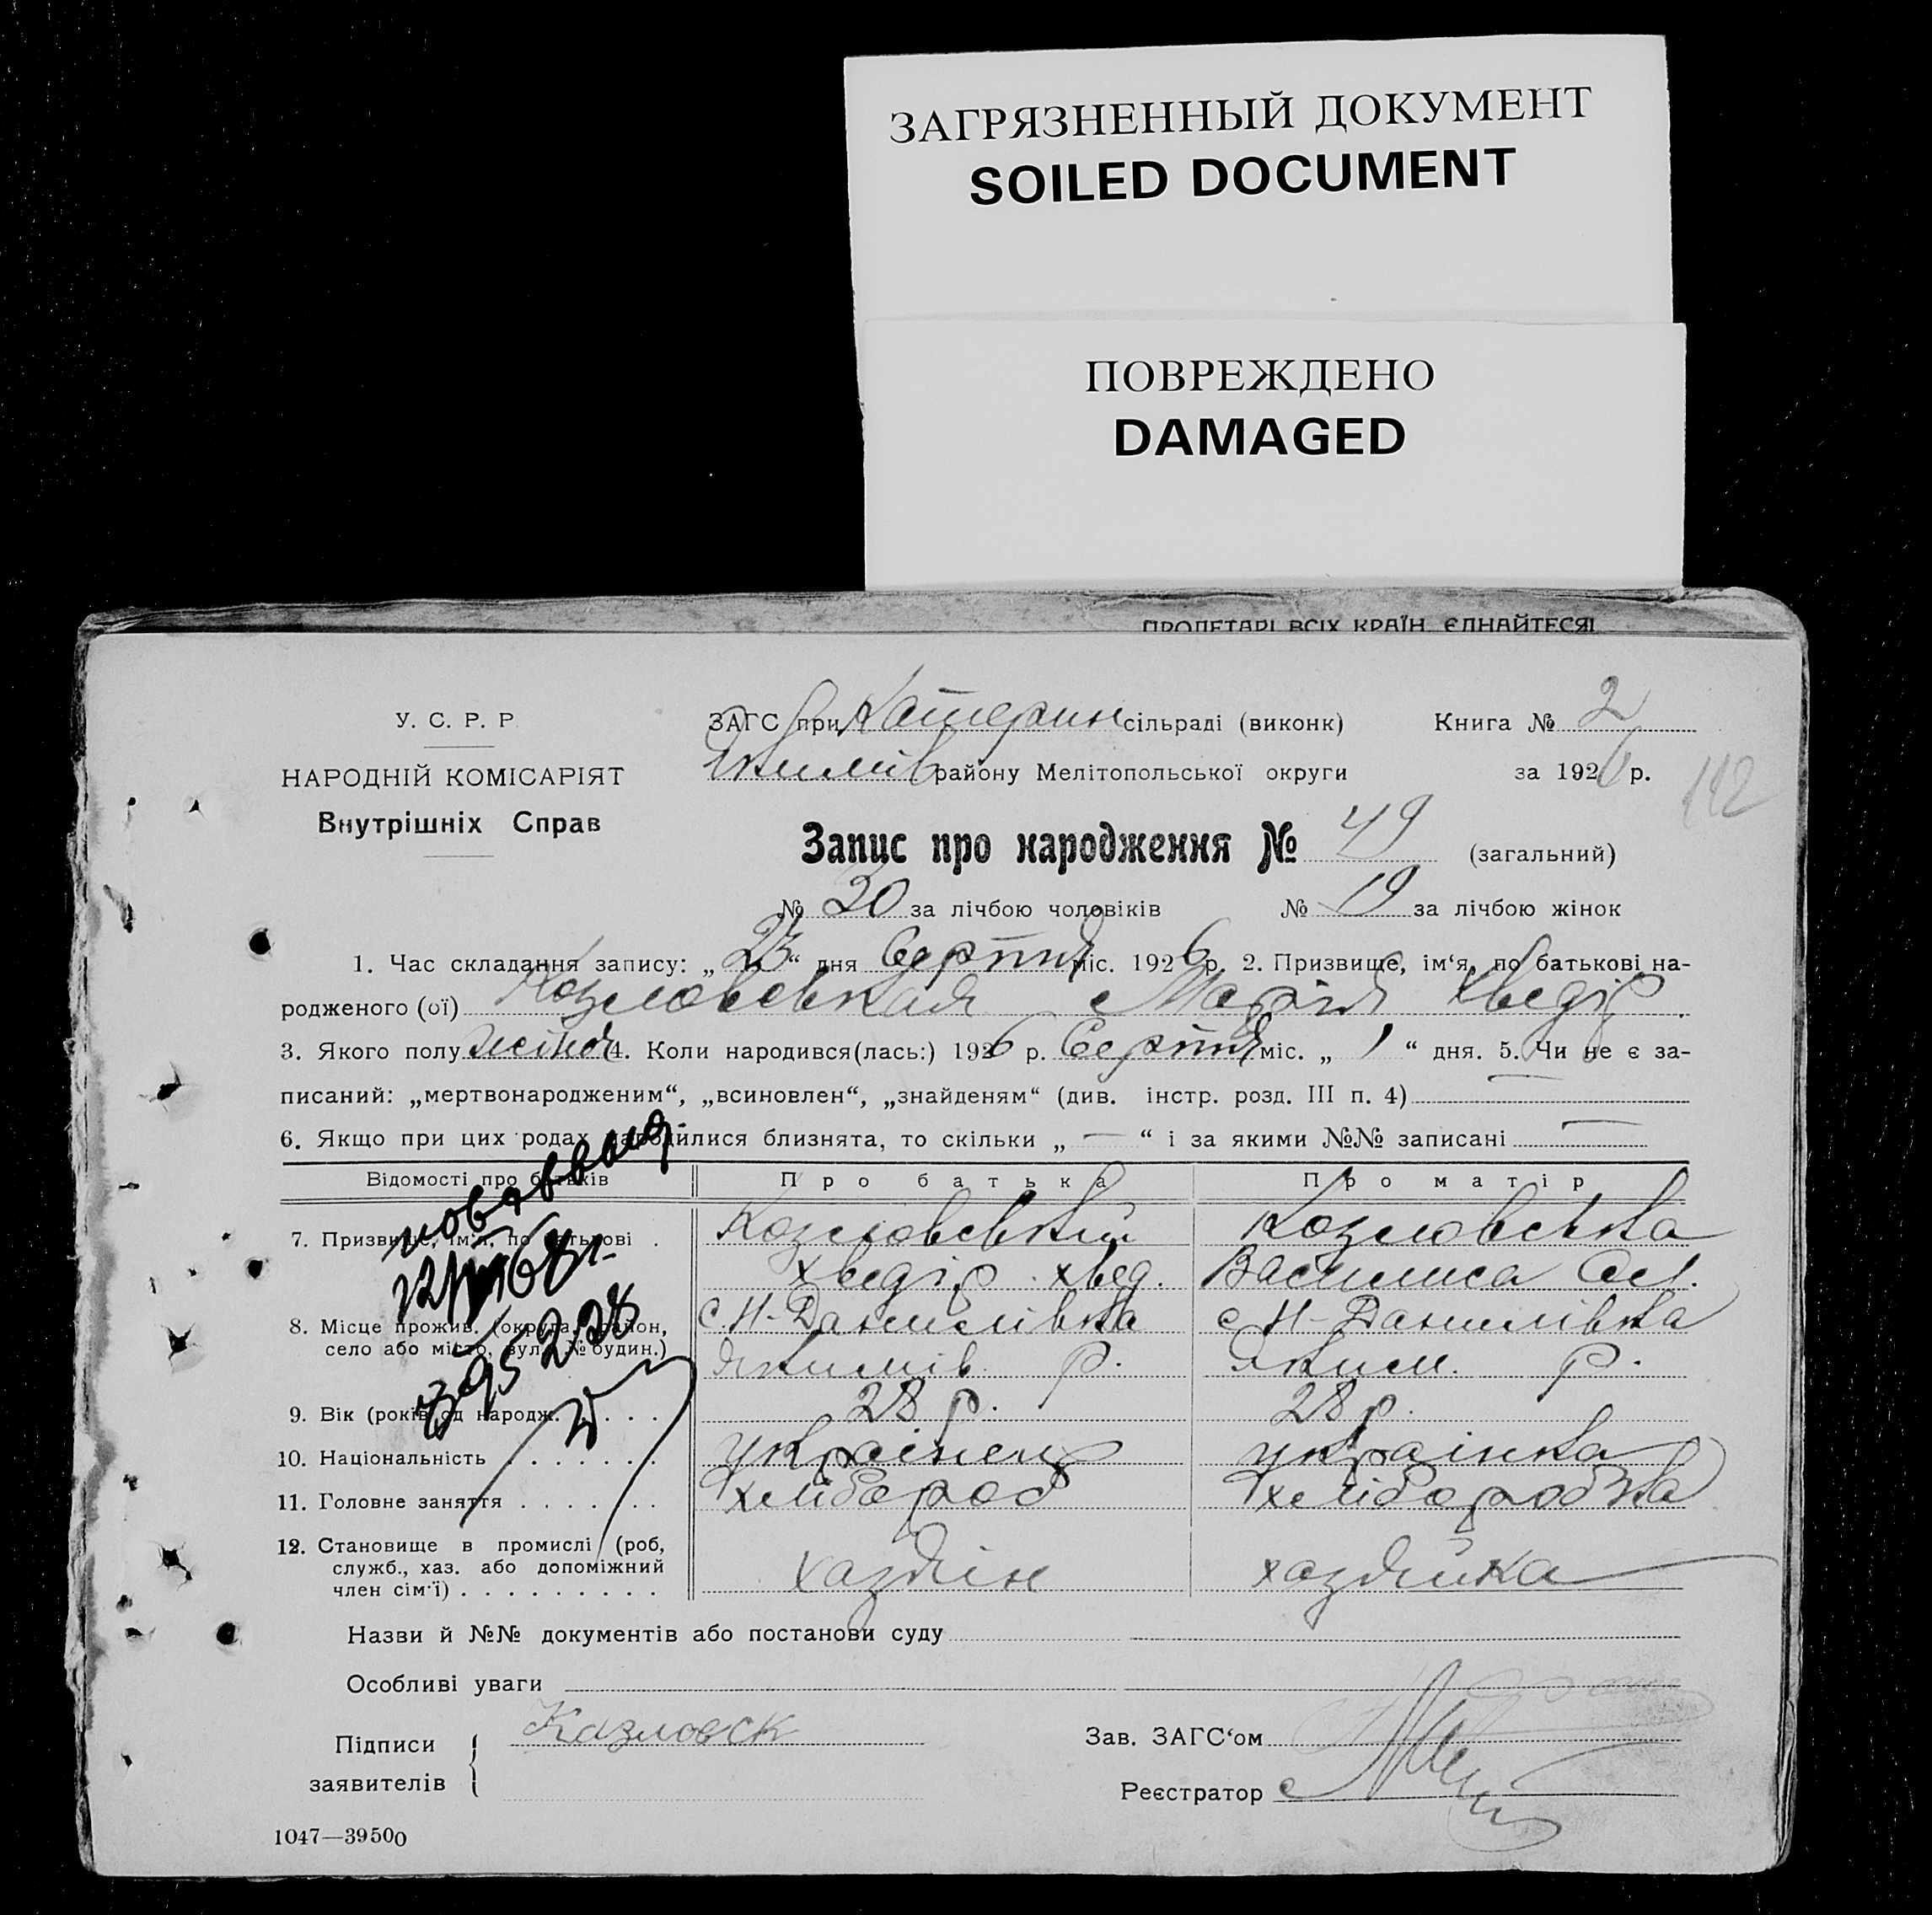 ЗАГРЯЗНЕННЫЙ ДОКУМЕНТ
SOILED DOCUMENT
ПОВРЕЖДЕНО
DAMAGED
ПРОЛЕТАРІ ВСІХ КРАЇН, ЄДНАЙТЕСЯ!
У. С. Р. Р
НАРОДНІЙ КОМІСАРІЯТ
Внутрішніх Справ
ЗАГС при Катерин сільраді (виконк) Книга № 2
Якимів району Мелітопольської округи за 1926 р.
112
Запис про народження № 49 (загальний)
№ 30 за лічбою чоловіків № 19 за лічбою жінок
1. Час складання запису: „ 23 “ дня Серпня міс. 1926 р. 2. Призвище, ім‘я, по батькові на-
родженого (ої) Козловськая Марія Хведір.
3. Якого полу жіноч 4. Коли народився(лась:) 1926 р. Серпня міс. „ 1 “ дня. 5. Чи не є за-
писаний: „мертвонародженим“, „всиновлен“, „знайденям“ (див. інстр. розд. III п. 4)
6. Якщо при цих родах народилися близнята, то скільки „ — “ і за якими №№ записані —
Відомості про батьків Про батька Про матір
7. Призвище, ім‘я, по батькові . Козловський Козловська
Хведір Хвед. Василиса
8. Місце прожив. (округа, район, с. Н-Данилівка с Н-Данилівка
село або місто, вул. № будин.) Якимів р. Яким. р.
9. Вік (років од народж. . . . . 28 р. 28 р.
10. Національність . . . . . . . українець українка
11. Головне заняття . . . . . . . хлібороб хліборобка
12. Становище в промислі (роб, служб., хаз. або допоміжний член сім‘ї) . . . . . . . . . хазяїн хазяйка
Назви й №№ документів або постанови суду
Особливі уваги
Підписи Казловск Зав. ЗАГС‘ом
заявителів Реєстратор
1047—39500